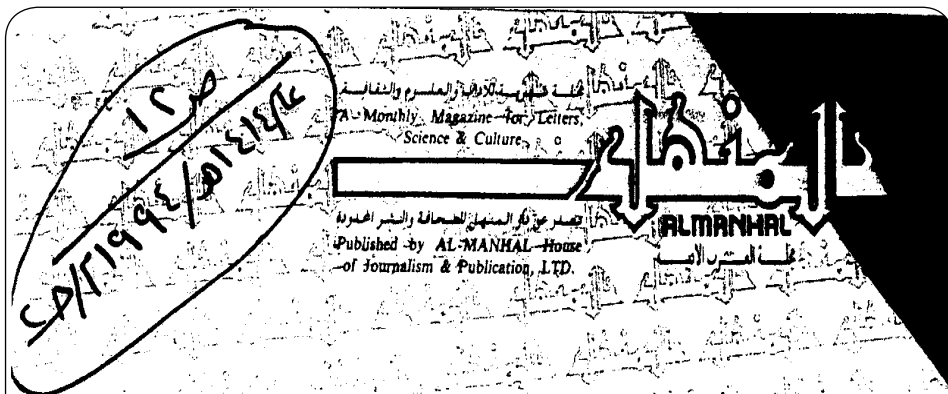 ص ١٢
١٤١٤هـ/١٩٩٤م
مجلة شهرية للآداب والعلوم والثقافة
A Monthly Magazine for Letters,
Science & Culture
المنهل
تصدر عن دار المنهل للصحافة والنشر المحدودة
Published by AL-MANHAL House
of Journalism & Publication, LTD.
ALMANHAL
مجلة العرب الأدبية